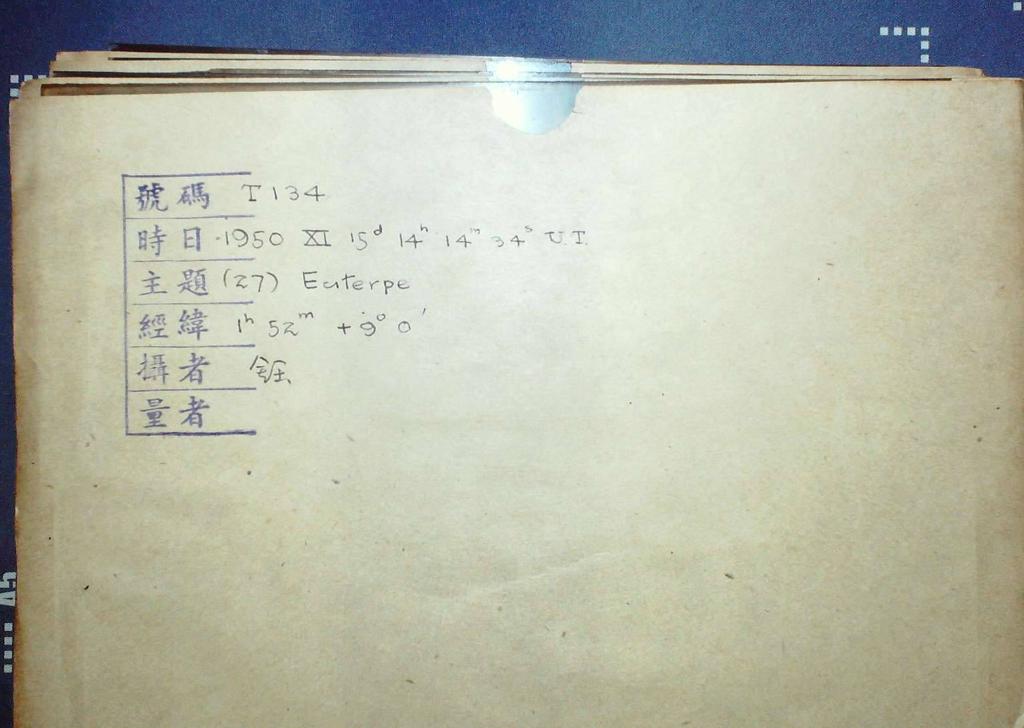 號碼 T 134
時日 1950 XI 15ᵈ 14ʰ 14ᵐ 34ˢ U.T.
主題 (27) Euterpe
經緯 1ʰ 52ᵐ +9° 0′
攝者
量者